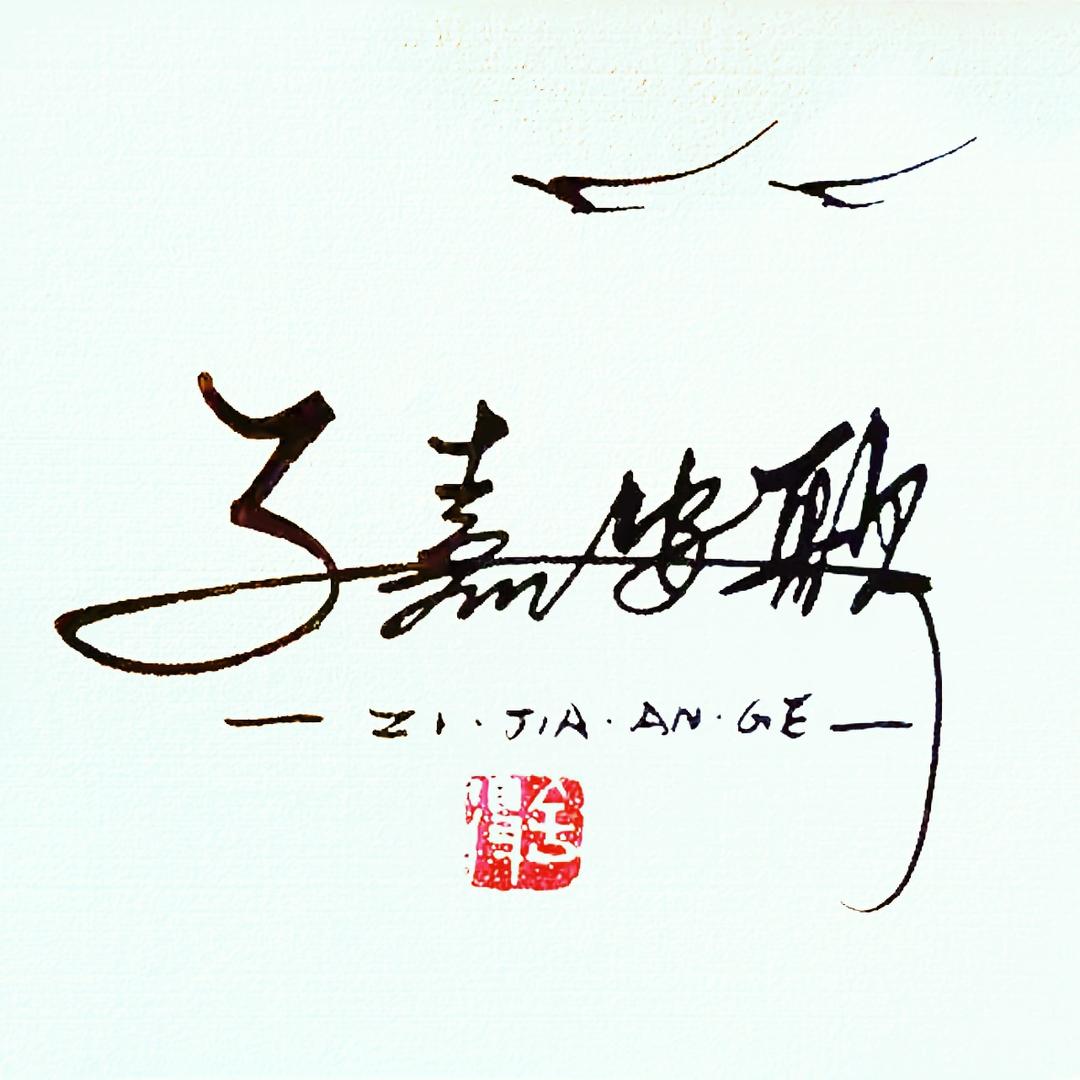 子嘉安
— ZI · JIA · AN · GE —